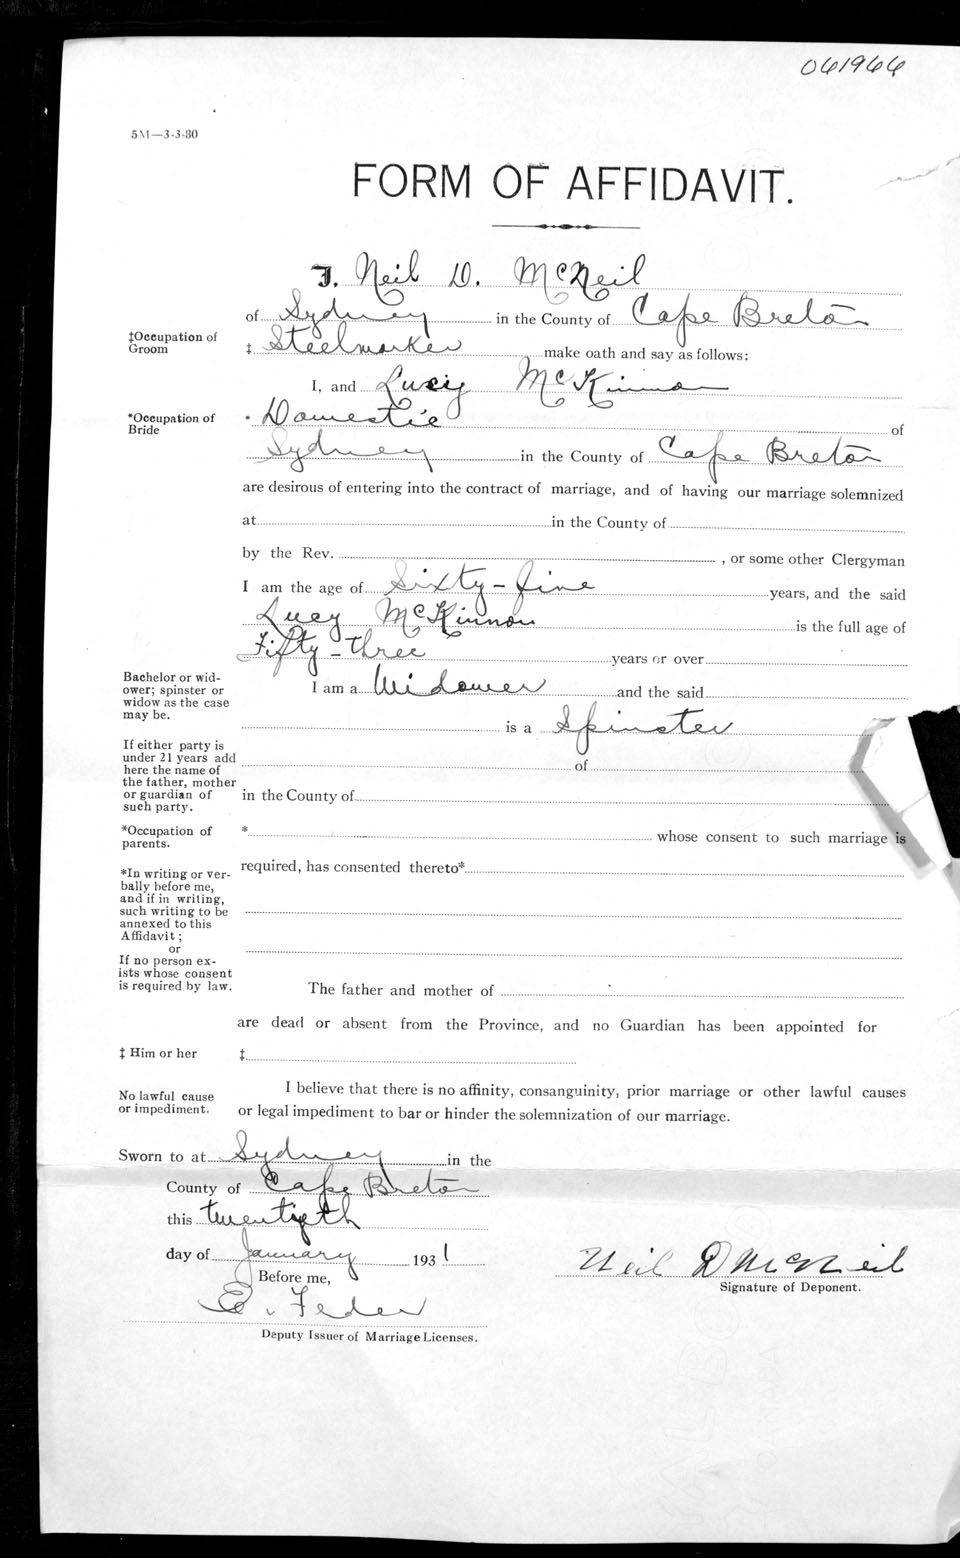 061966
5M—3-3-80
FORM OF AFFIDAVIT.
I, Neil D. McNeil
of Sydney in the County of Cape Breton
‡Occupation of Groom ‡ Steelworker make oath and say as follows:
I, and Lucy McKinnon
*Occupation of Bride * Domestic of
Sydney in the County of Cape Breton
are desirous of entering into the contract of marriage, and of having our marriage solemnized
at in the County of
by the Rev. , or some other Clergyman
I am the age of Sixty-five years, and the said
Lucy McKinnon is the full age of
Fifty-three years or over
Bachelor or wid-
ower; spinster or
widow as the case
may be.
I am a Widower and the said
is a Spinster
If either party is
under 21 years add
here the name of
the father, mother
or guardian of
such party.
of
in the County of
*Occupation of
parents.
* whose consent to such marriage is
required, has consented thereto*
*In writing or ver-
bally before me,
and if in writing,
such writing to be
annexed to this
Affidavit;
or
If no person ex-
ists whose consent
is required by law.
The father and mother of
are dead or absent from the Province, and no Guardian has been appointed for
‡ Him or her ‡
No lawful cause
or impediment.
I believe that there is no affinity, consanguinity, prior marriage or other lawful causes
or legal impediment to bar or hinder the solemnization of our marriage.
Sworn to at Sydney in the
County of Cape Breton
this twentieth
day of January 1931
Before me,
E. Feder
Deputy Issuer of Marriage Licenses.
Neil D McNeil
Signature of Deponent.